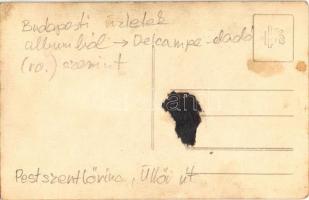 Budapesti üzletek
albumból → Delcampe-dadó
(ro.) szerint
Pestszentlőrinc, Üllői út